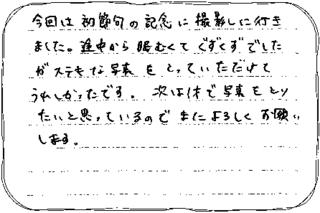 今回は初節句の記念に撮影しに行き
ました。途中から眠むくてぐずぐずでした
がステキな写真をとっていただけて
うれしかったです。次は1才で写真をとり
たいと思っているのでまたよろしくお願い
します。